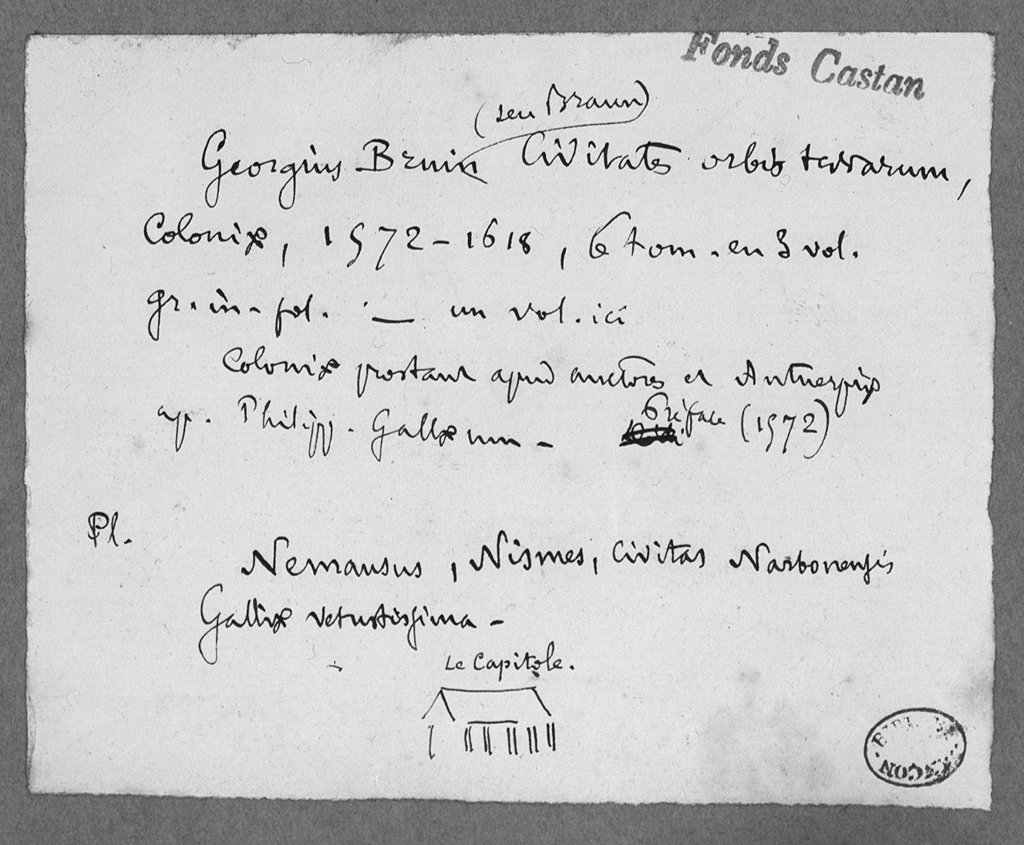 Fonds Castan
(seu Braun)
Georgius Bruin Civitates orbis terrarum,
Coloniæ, 1572-1618, 6 tom. en 3 vol.
gr. in-fol. — un vol. ici
Coloniæ prostant apud auctores et Antuerpiæ
ap. Philipp. Gallæum - Préface (1572)
Pl.
Nemausus, Nismes, Civitas Narbonensis
Galliæ vetustissima -
Le Capitole.